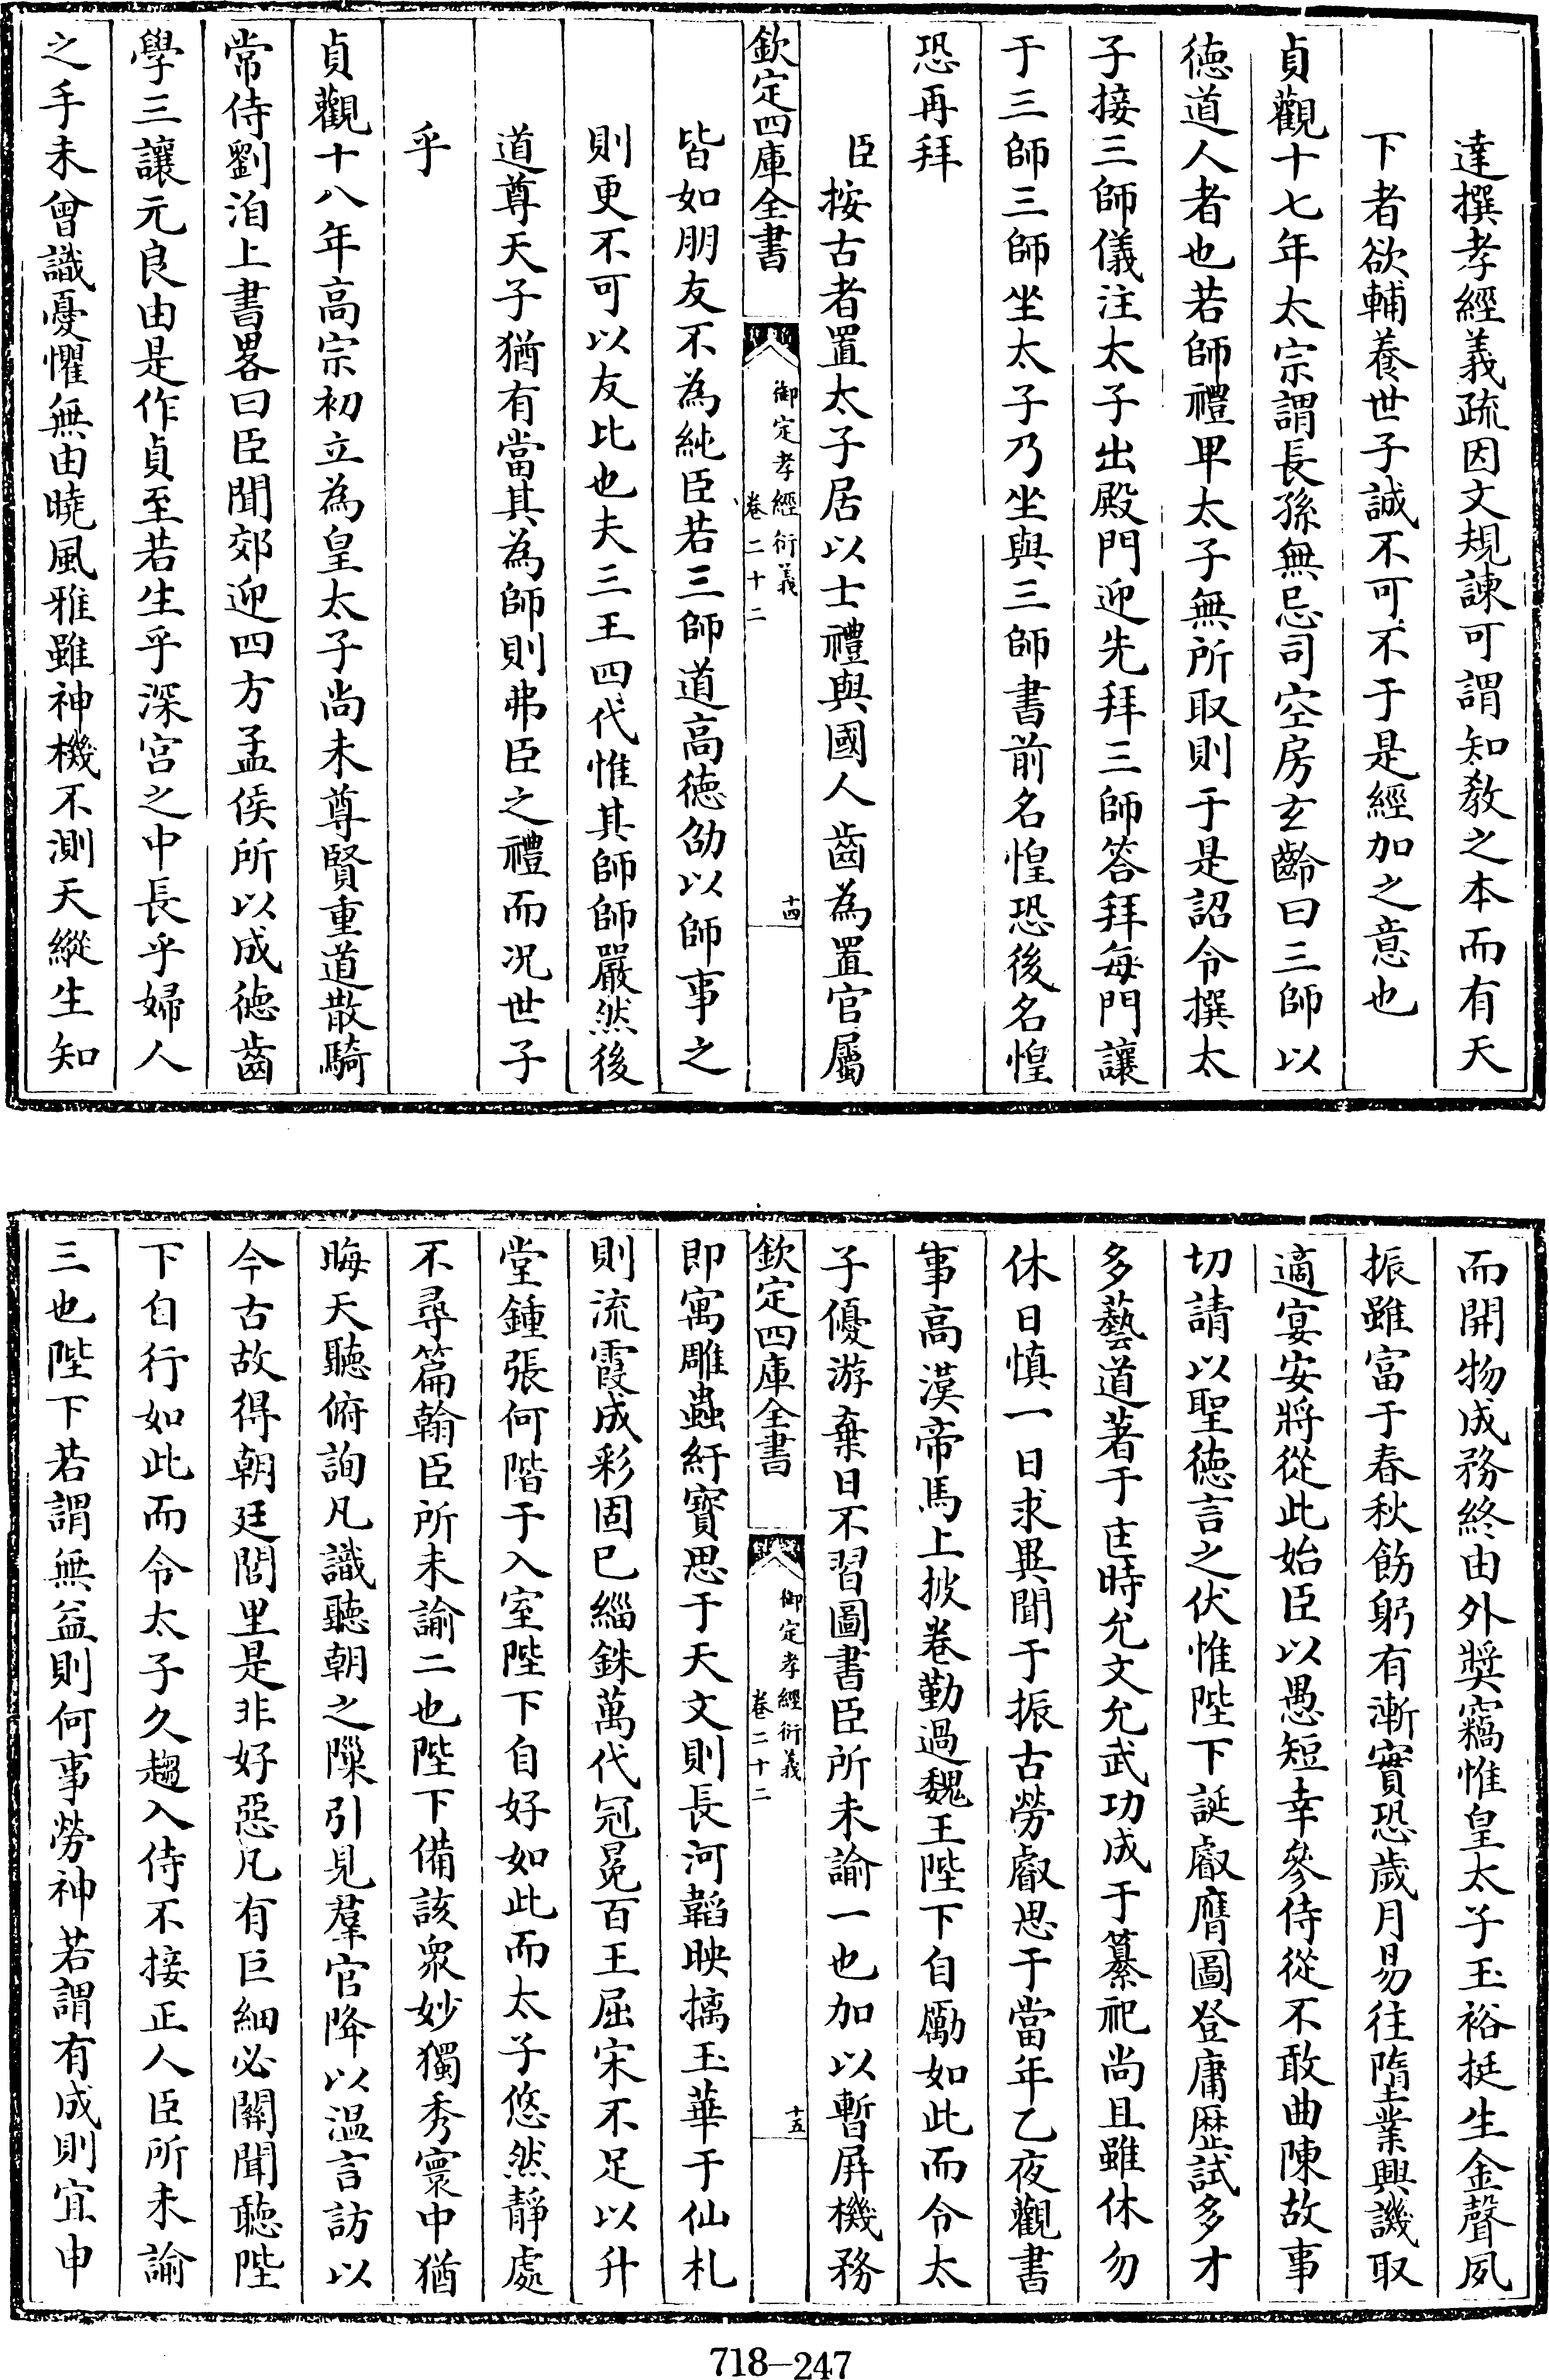 達撰孝經義疏因文規諫可謂知教之本而有天
下者欲輔養世子誠不可不于是經加之意也
貞觀十七年太宗謂長孫無忌司空房玄齡曰三師以
徳道人者也若師禮卑太子無所取則于是詔令撰太
子接三師儀注太子出殿門迎先拜三師答拜每門讓
于三師三師坐太子乃坐與三師書前名惶恐後名惶
恐再拜
臣按古者置太子居以士禮與國人齒為置官屬
欽定四庫全書
御定孝經衍義
卷二十二
十四
皆如朋友不為純臣若三師道高徳劭以師事之
則更不可以友比也夫三王四代惟其師師嚴然後
道尊天子猶有當其為師則弗臣之禮而况世子
乎
貞觀十八年高宗初立為皇太子尚未尊賢重道散騎
常侍劉洎上書畧曰臣聞郊迎四方孟侯所以成徳齒
學三讓元良由是作貞至若生乎深宫之中長乎婦人
之手未曾識憂懼無由曉風雅雖神機不測天縱生知
而開物成務終由外奬竊惟皇太子玉裕挺生金聲夙
振雖富于春秋飭躬有漸實恐歲月易往隳業興譏取
適宴安將從此始臣以愚短幸參侍從不敢曲陳故事
切請以聖徳言之伏惟陛下誕叡膺圖登庸歷試多才
多藝道著于匡時允文允武功成于纂祀尚且雖休勿
休日慎一日求異聞于振古勞叡思于當年乙夜觀書
事高漢帝馬上披卷勤過魏王陛下自勵如此而令太
子優游棄日不習圖書臣所未諭一也加以暫屏機務
欽定四庫全書
御定孝經衍義
卷二十二
十五
即寓雕蟲紆寳思于天文則長河韜映摛玉華于仙札
則流霞成彩固已緇銖萬代冠冕百王屈宋不足以升
堂鍾張何階于入室陛下自好如此而太子悠然靜處
不尋篇翰臣所未諭二也陛下備該衆妙獨秀寰中猶
晦天聽俯詢凡識聽朝之隟引見羣官降以温言訪以
今古故得朝廷閭里是非好惡凡有巨細必關聞聽陛
下自行如此而令太子久趨入侍不接正人臣所未諭
三也陛下若謂無益則何事勞神若謂有成則宜申
718-247